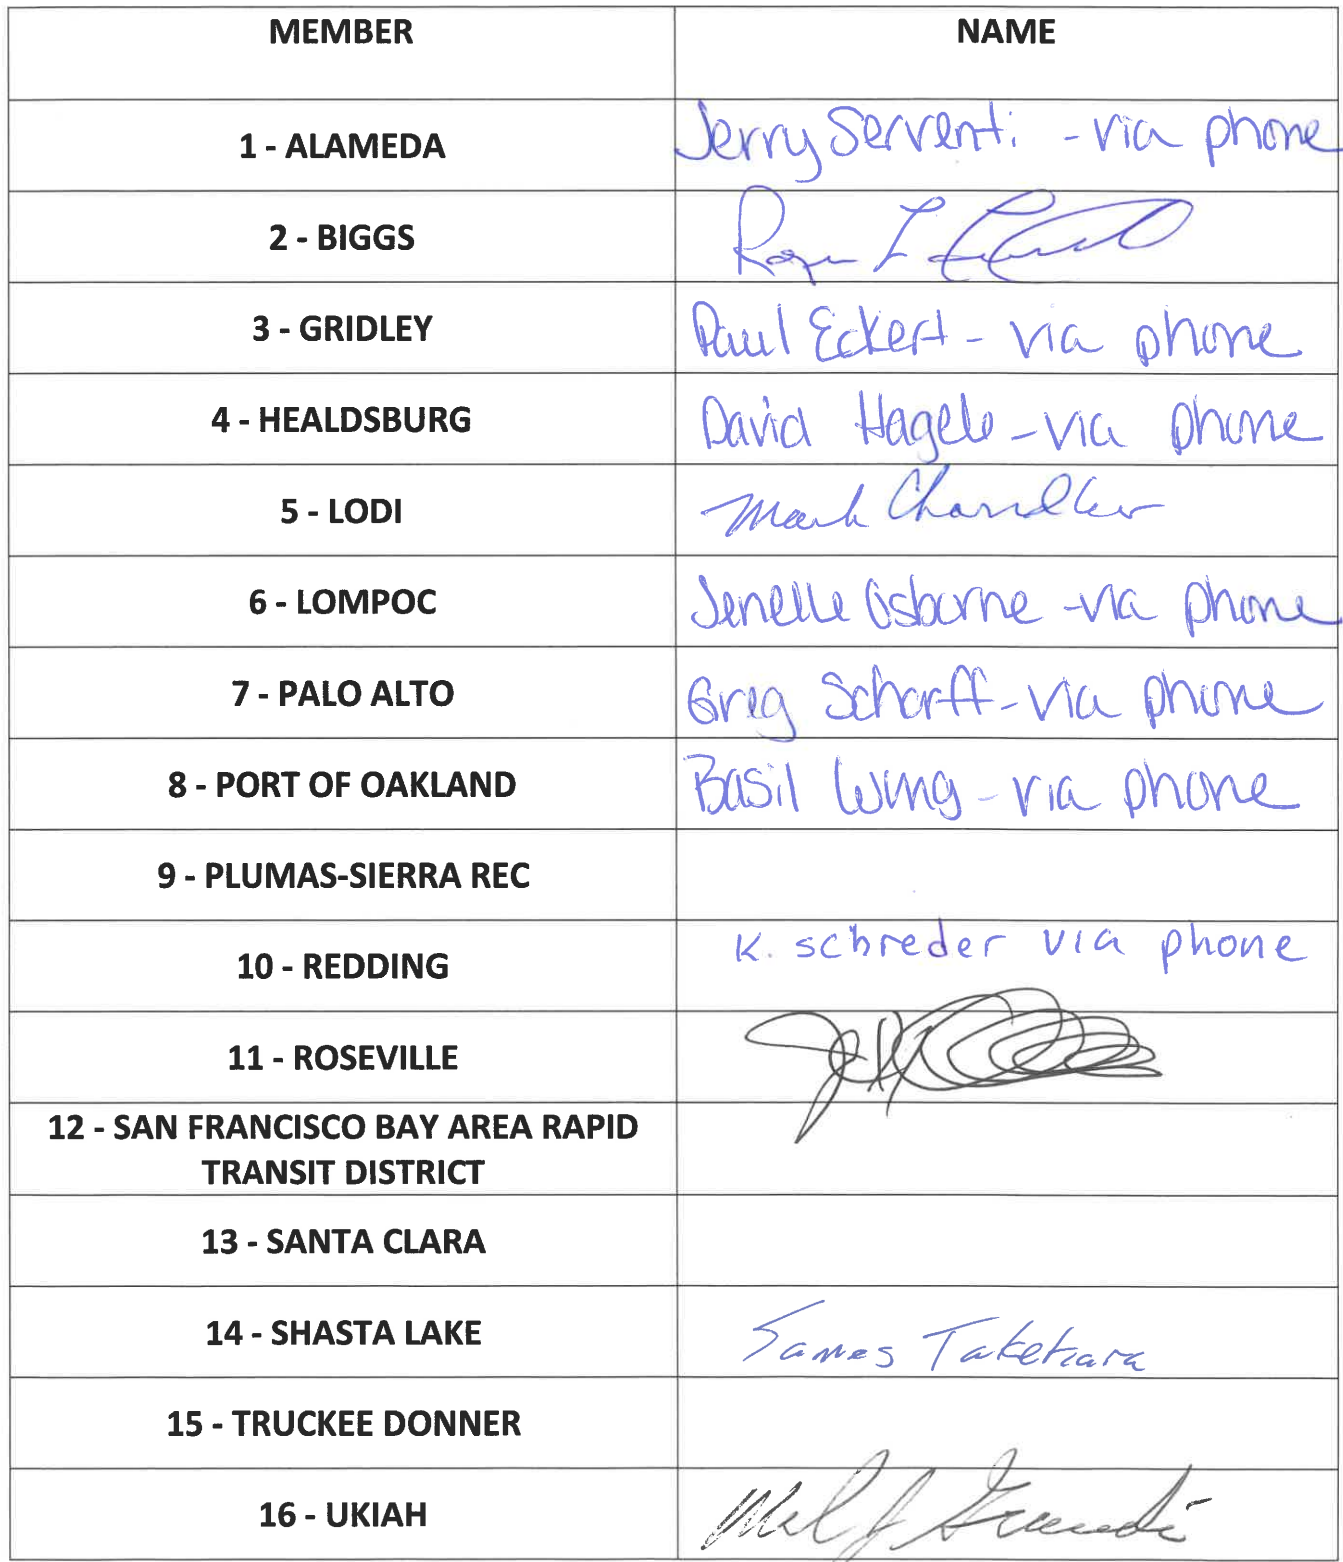 MEMBER NAME
1 - ALAMEDA Jerry Serventi - via phone
2 - BIGGS Roger L
3 - GRIDLEY Paul Eckert - via phone
4 - HEALDSBURG David Hagele - via phone
5 - LODI Mark Chandler
6 - LOMPOC Jenelle Osborne - via phone
7 - PALO ALTO Greg Scharff - via phone
8 - PORT OF OAKLAND Basil Wong - via phone
9 - PLUMAS-SIERRA REC
10 - REDDING K. Schreder via phone
11 - ROSEVILLE
12 - SAN FRANCISCO BAY AREA RAPID
TRANSIT DISTRICT
13 - SANTA CLARA
14 - SHASTA LAKE James Takehara
15 - TRUCKEE DONNER
16 - UKIAH